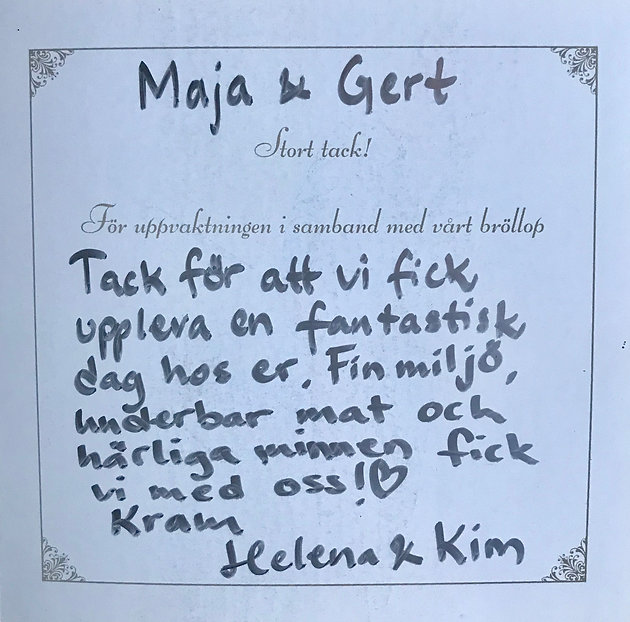 Maja & Gert
Stort tack!
För uppvaktningen i samband med vårt bröllop
Tack för att vi fick
uppleva en fantastisk
dag hos er. Fin miljö,
underbar mat och
härliga minnen fick
vi med oss!♡
Kram
Helena & Kim